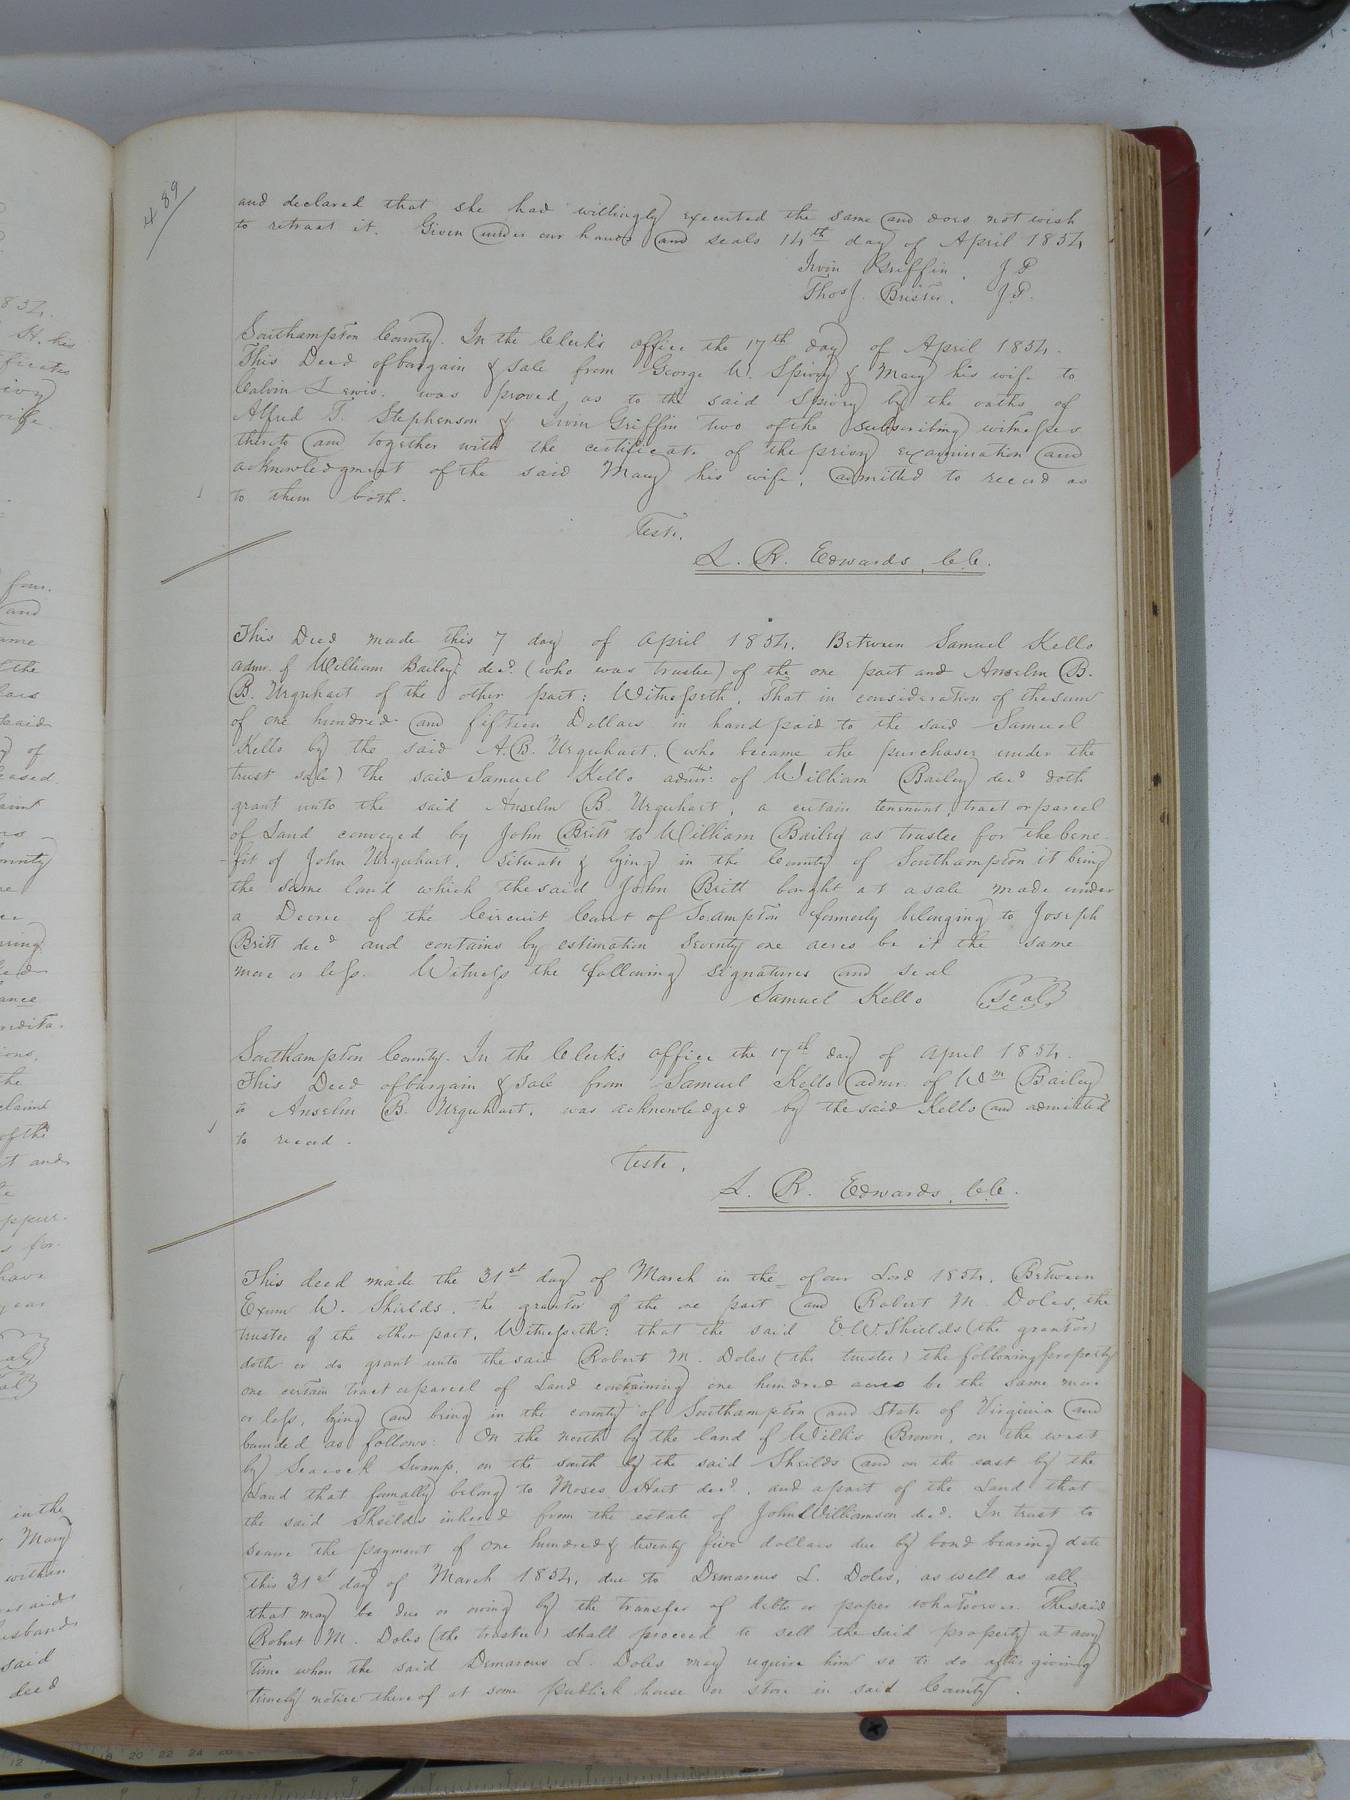 489
and declared that she had willingly executed the same and does not wish
to retract it. Given under our hands and seals 14th day of April 1854
Irvin Griffin. J P
Thos J. Brister. J.P.
Southampton County. In the Clerk's office the 17th day of April 1854.
This Deed of bargain & sale from George W. Spivey & Mary his wife to
Calvin Lewis. was proved, as to the said Spivey by the oaths of
Alfred T. Stephenson & Irvin Griffin two of the subscribing witnesses
thereto and together with the certificate of the privy examination and
acknowledgment of the said Mary his wife, admitted to record as
to them both.
Teste.
L. R. Edwards, C.C.
This Deed made this 7 day of April 1854. Between Samuel Kello
admr. of William Bailey decd. (who was trustee) of the one part and Anselm B.
B. Urquhart of the other part: Witnesseth, That in consideration of the sum
of one hundred and fifteen Dollars in hand paid to the said Samuel
Kello by the said A.B. Urquhart, (who became the purchaser under the
trust sale) the said Samuel Kello admr. of William Bailey decd doth
grant unto the said Anselm B. Urquhart, a certain tenement, tract or parcel
of Land conveyed by John Britt to William Bailey as trustee for the bene-
fit of John Urquhart, situate & lying in the County of Southampton it being
the same land which the said John Britt bought at a sale made under
a Decree of the Circuit Court of So.ampton formerly belonging to Joseph
Britt decd and contains by estimation Seventy one acres be it the same
more or less. Witness the following signatures and seal
Samuel Kello Seal
Southampton County. In the Clerk's office the 17th day of April 1854.
This Deed of bargain & sale from Samuel Kello admr. of Wm Bailey
to Anselm B. Urquhart. was acknowledged by the said Kello and admitted
to record.
Teste.
L. R. Edwards, C.C.
This deed made the 31st day of March in the of our Lord 1854. Between
Exum W. Shields. the grantor of the one part and Robert M. Doles, the
trustee of the other part, Witnesseth: that the said E.W. Shields (the grantor)
doth or do grant unto the said Robert M. Doles (the trustee) the following property
one certain tract or parcel of Land containing one hundred acres be the same more
or less, lying and being in the county of Southampton and State of Virginia and
bounded as follows: On the north by the land of Willis Brown, on the west
by Seacock Swamp, on the south by the said Sheilds and on the east by the
Land that formally belong to Moses Hart decd., and a part of the Land that
the said Sheilds inherd from the estate of John Williamson decd. In trust to
secure the payment of one hundred & twenty five dollars due by bond bearing date
this 31st day of March 1854, due to Demarcus L. Doles, as well as all
that may be due or owing by the transfer of debts or paper whatsoever. The said
Robert M. Doles (the trustee) shall proceed to sell the said property at any
time when the said Demarcus L. Doles may require him so to do after giving
timely notice thereof at some publick house or store in said County.